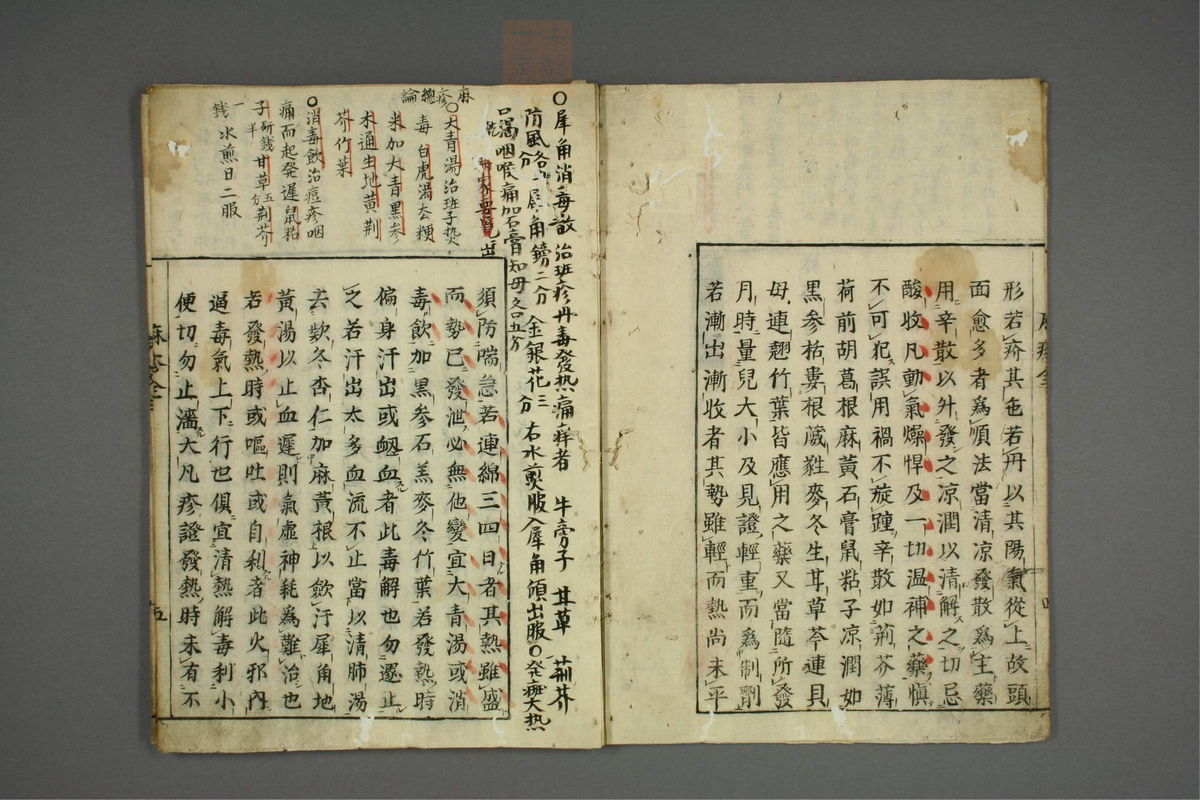 形若疥其色若丹以其陽氣從上故頭
面愈多者爲順法當清凉發散爲主藥
用辛散以升發之凉潤以清解之切忌
酸收凡動氣燥悍及一切温補之藥愼
不可犯誤用禍不旋踵辛散如荊芥薄
荷前胡葛根麻黃石膏鼠粘子凉潤如
黒参栝婁根葳甤麥冬生甘草芩連貝
母連翹竹葉皆應用之藥又當隨所發
月時量兒大小及見證輕重而爲制劑
若漸出漸收者其勢雖輕而熱尚未平
○犀角消毒散 治班疹丹毒發热痛痒者 牛旁子 甘草 荊芥
防風各 犀角鎊二分 金銀花三分 右水煎服入犀角傾出服○発班大热
口渇咽喉痛加石膏知母各五分
麻疹總論
○大青湯治班子热
毒 白虎湯去粳
米加大青黒参
木通生地黄荆
芥竹葉
○消毒飲治痘疹咽
痛而起発遅鼠粘
子 研錢半 甘草五分荆芥
一錢 水煎日二服
須防喘急若連綿三四日者其熱雖盛
而勢已發泄必無他變宜大青湯或消
毒飲加黒参石羔麥冬竹葉若發熱時
偏身汗出或衂血者此毒解也勿遽止
之若汗出太多血流不止當以清肺湯
去欵冬杏仁加麻黃根以歛汗犀角地
黃湯以止血遲則氣虛神耗爲難治也
若發熱時或嘔吐或自利者此火邪內
逼毒氣上下行也俱宜清熱解毒利小
便切勿止濇大凡疹證發熱時未有不
五